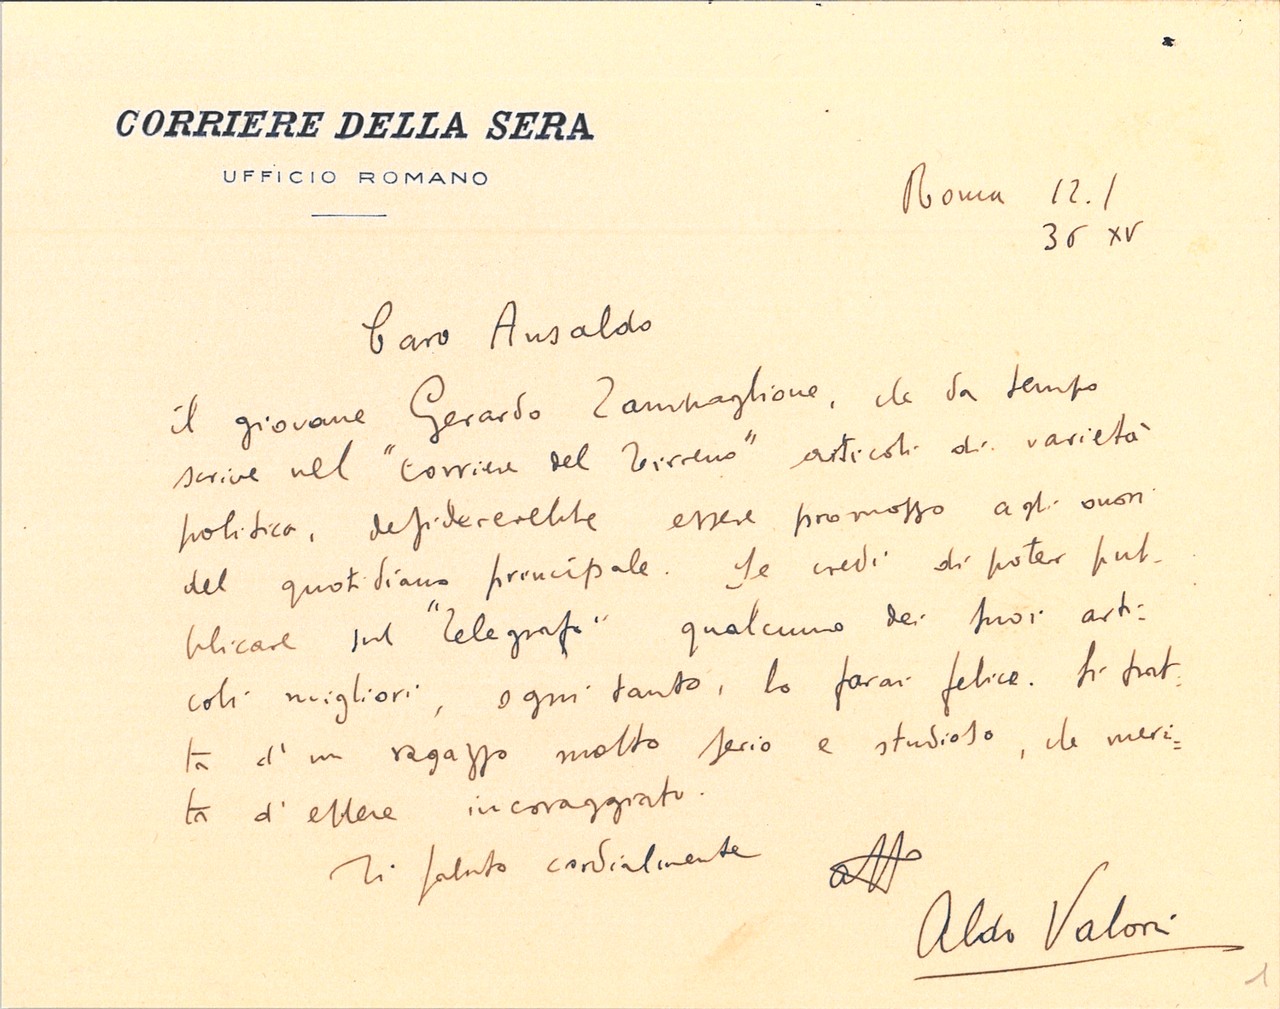 CORRIERE DELLA SERA
UFFICIO ROMANO
Roma 12.1
36 XV
Caro Ansaldo
il giovane Gerardo Zampaglione, che da tempo
scrive nel "Corriere del Tirreno" articoli di varietà
politica, desidererebbe essere promosso agli onori
del quotidiano principale. Se credi di poter pub-
blicare sul "Telegrafo" qualcuno dei suoi arti=
coli migliori, ogni tanto, lo farai felice. Si trat=
ta d'un ragazzo molto serio e studioso, che meri=
ta d'essere incoraggiato.
Ti saluto cordialmente
aff
Aldo Valori
1